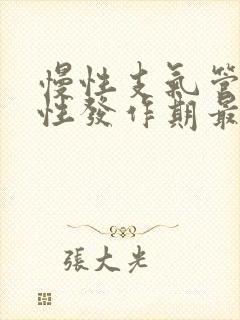 慢性支氣管
性發作期最
張大光